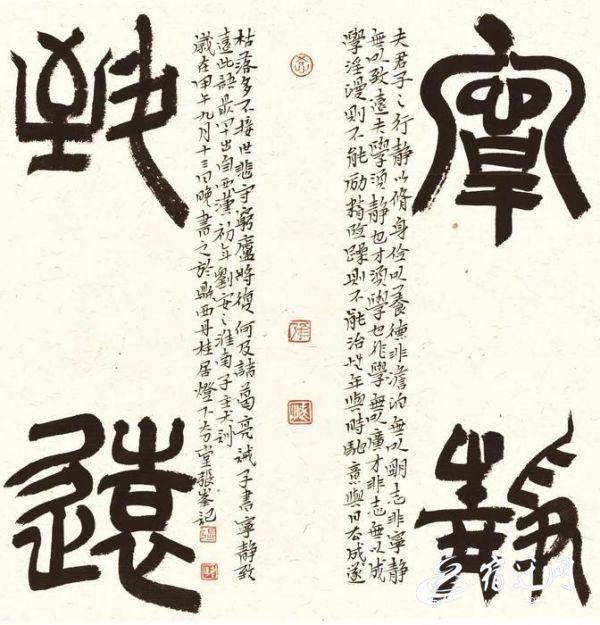 寧靜
夫君子之行靜以脩身儉以養德非澹泊無以明志非寧靜
無以致遠夫學須靜也才須學也非學無以廣才非志無以成
學淫漫則不能勵精險躁則不能治性年與時馳意與日去成遂
枯落多不接世悲守窮廬將復何及諸葛亮誡子書寧靜致
遠此語最早出自西漢初年劉安之淮南子主術訓
歲在甲午九月十三日晚書之於西丹桂居燈下堂張峯記
致遠
宿迁网